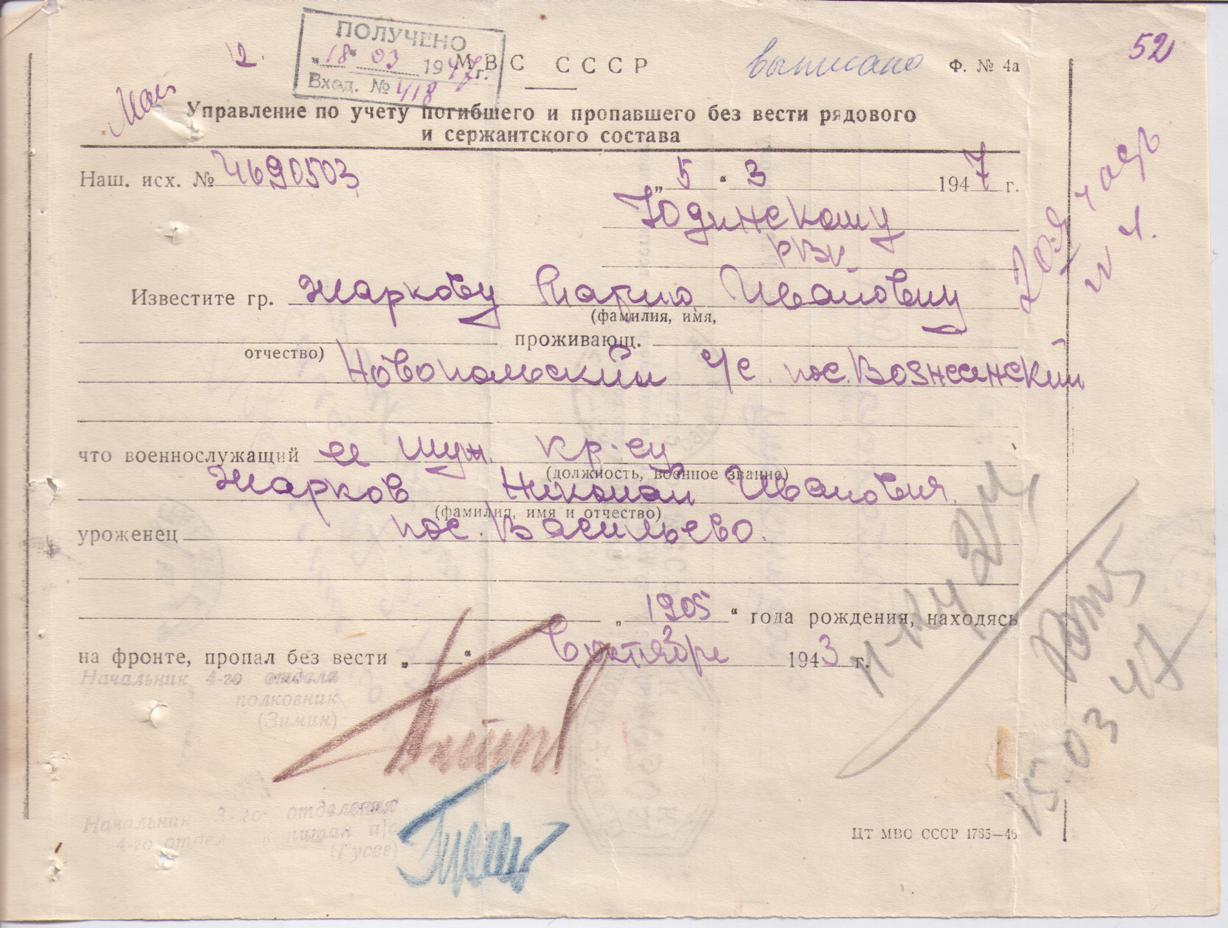 2.
ПОЛУЧЕНО
"18" 03 1947 г.
Вход. № 418
МВС СССР
выписано
Ф. № 4а
52
Управление по учету погибшего и пропавшего без вести рядового
и сержантского состава
Наш. исх. № 4690503
"5" 3 1947 г.
Юдинскому
РВК
Известите гр. Жаркову Марию Ивановну
(фамилия, имя,
проживающ.
отчество)
Новопольский с/с. пос. Вознесенский
что военнослужащий ее муж. кр-ец
(должность, военное звание)
Жарков Николай Иванович.
(фамилия, имя и отчество)
уроженец пос. Васильево.
"1905" года рождения, находясь
на фронте, пропал без вести " " в октябре 1943 г.
Начальник 4-го отдела
полковник
(Зимин)
15.03 47
Начальник 3-го отделения
4-го отдел капитан и/с
(Гусев)
ЦТ МВС СССР 1785—46